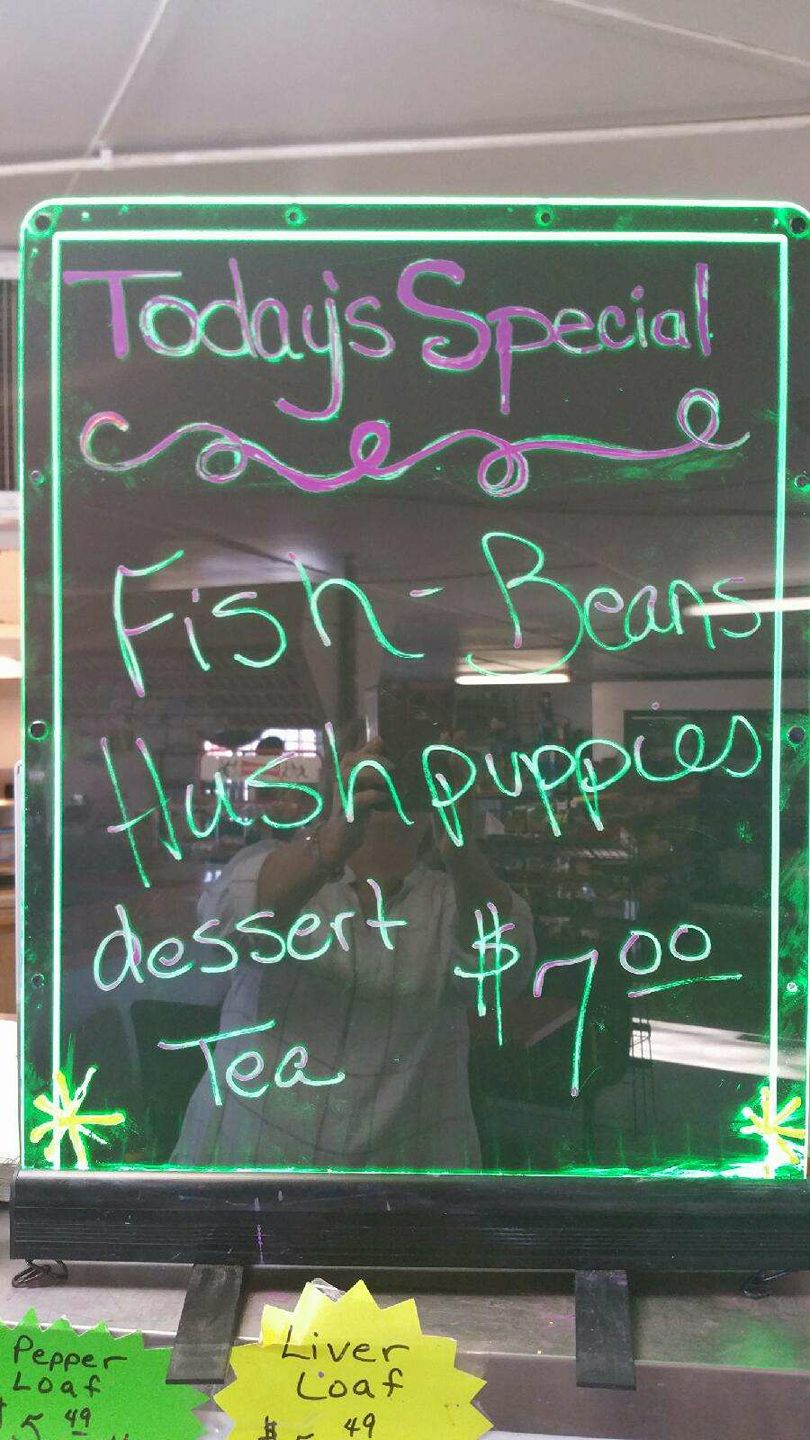 Today's Special
Fish - Beans
Hushpuppies
dessert $7.00
Tea
Pepper
Loaf
$5.49
Liver
Loaf
$5.49